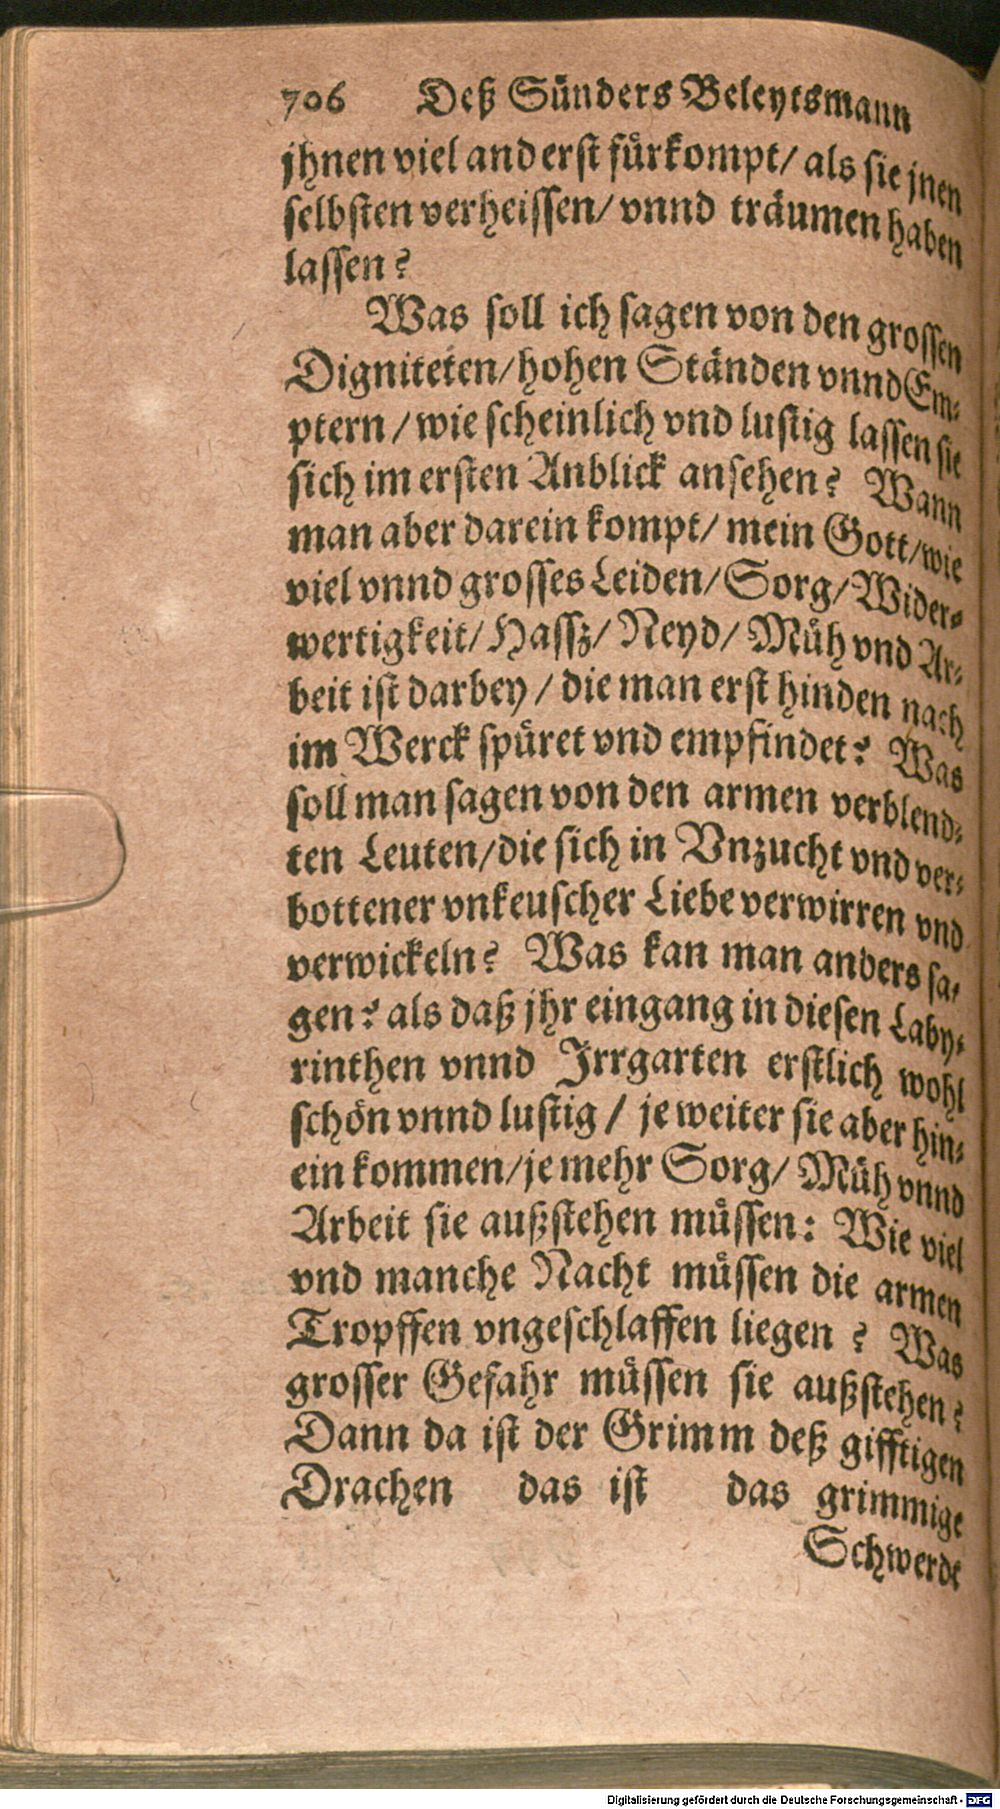 706 Deß Sünders Beleytsmann
jhnen viel anderst fürkompt/ als sie jnen
selbsten verheissen/ vnnd träumen haben
lassen?
Was soll ich sagen von den grossen
Digniteten/ hohen Ständen vnnd Em-
ptern/ wie scheinlich vnd lustig lassen sie
sich im ersten Anblick ansehen? Wann
man aber darein kompt/ mein Gott/ wie
viel vnnd grosses Leiden/ Sorg/ Wider-
wertigkeit/ Hassz/ Neyd/ Müh vnd Ar-
beit ist darbey/ die man erst hinden nach
im Werck spüret vnd empfindet? Was
soll man sagen von den armen verblend-
ten Leuten/ die sich in Vnzucht vnd ver-
bottener vnkeuscher Liebe verwirren vnd
verwickeln? Was kan man anders sa-
gen? als daß jhr eingang in diesen Laby-
rinthen vnnd Irrgarten erstlich wohl
schön vnnd lustig/ je weiter sie aber hin-
ein kommen/ je mehr Sorg/ Müh vnnd
Arbeit sie außstehen müssen: Wie viel
vnd manche Nacht müssen die armen
Tropffen vngeschlaffen liegen? Was
grosser Gefahr müssen sie außstehen?
Dann da ist der Grimm deß gifftigen
Drachen das ist das grimmige
Schwerdt
Digitalisierung gefördert durch die Deutsche Forschungsgemeinschaft - DFG